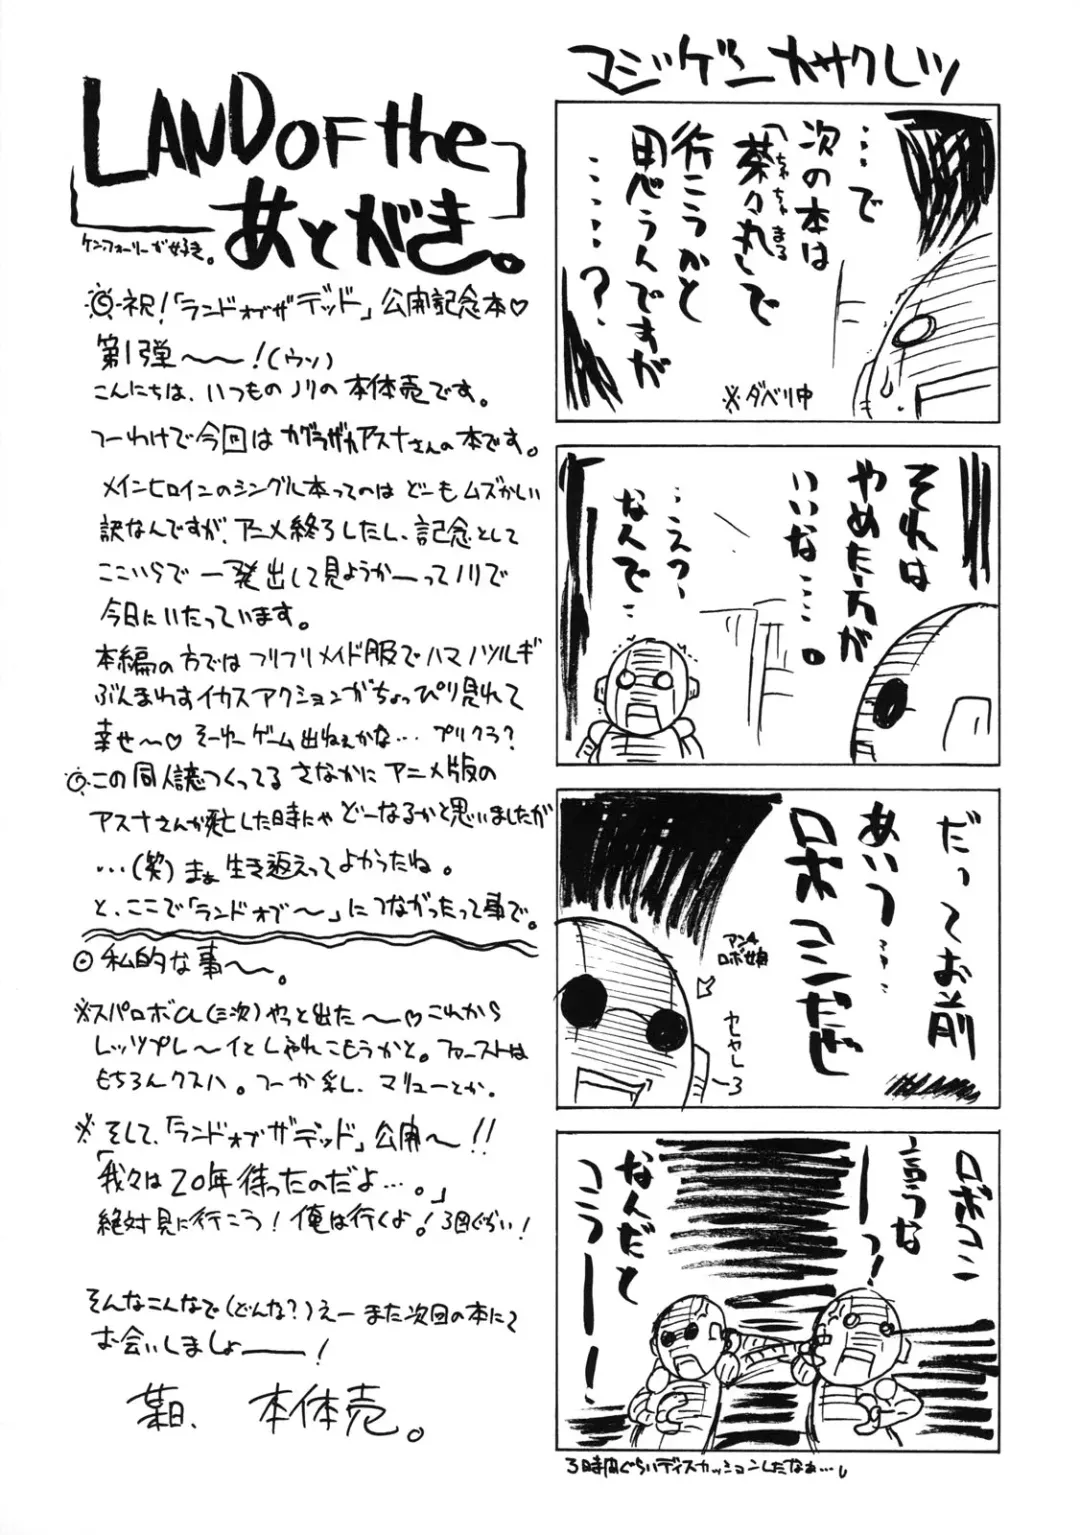 LAND OF the
あとがき。
ケン・フォーリーが好き。
◎祝!「ランドオブザデッド」公開記念本♡
第1弾〜〜!(ウソ)
こんにちは、いつものノリの本体売です。
つーわけで今回はカグラザカアスナさんの本です。
メインヒロインのシングル本ってのはどーもムズかしい
訳なんですが、アニメ終了したし、記念として
ここいらで一発出して見ようかーってノリで
今日にいたっています。
本編の方ではフリフリメイド服でハマノツルギ
ぶんまわすイカスアクションがちょっぴり見れて
幸せ〜♡ そーゆーゲーム出ねぇかな… プリクラ?
◎この同人誌つくってるさなかにアニメ版の
アスナさんが死亡した時にゃどーなるかと思いましたが
…(笑)まぁ生き返えってよかったね。
と、ここで「ランドオブ〜」につながったって事で。
◎私的な事〜〜。
※スパロボα(三次)やっと出た〜〜♡これから
レッツプレ〜イとしゃれこもうかと。ファーストは
もちろんクスハ。つーか乳し、マリューとか。
※そして、「ランドオブザデッド」公開〜!!
「我々は20年待ったのだよ…。」
絶対見に行こう!俺は行くよ!3回ぐらい!
そんなこんなで(どんな?)えーまた次回の本にて
お会いしましょ——!
某日、本体売。
マジゲンカサクレツ
…で
次の本は
「茶々丸」で
ちゃちゃまる
行こうかと
思うんですが
……?
※ダベリ中
それは
やめた方が
いいな…。
…えっ、
なんで…
だってお前
あいつ…
ロボコンだぜ
アンチ
ロボ女自
カセヤレーろ
ロボコン
言うな
ーっ!
なんだと
コラーー!
3時間ぐらいディスカッションしたなぁ…。